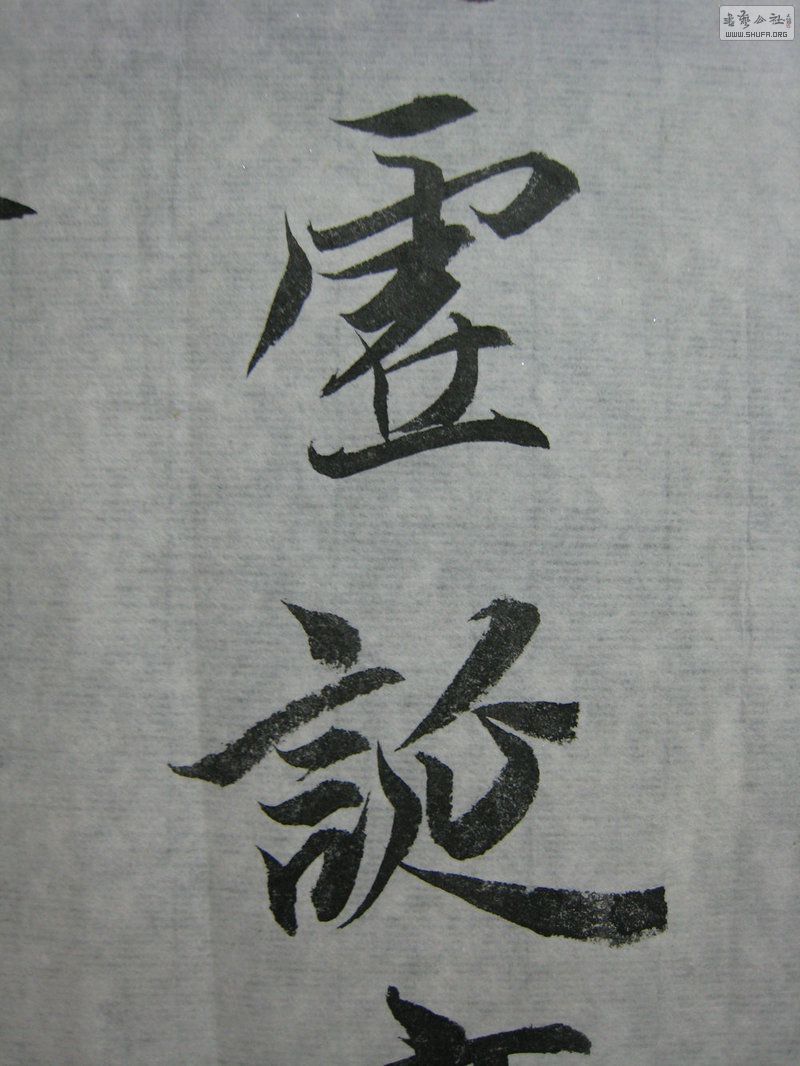 書藝公社
WWW.SHUFA.ORG
虛
誕